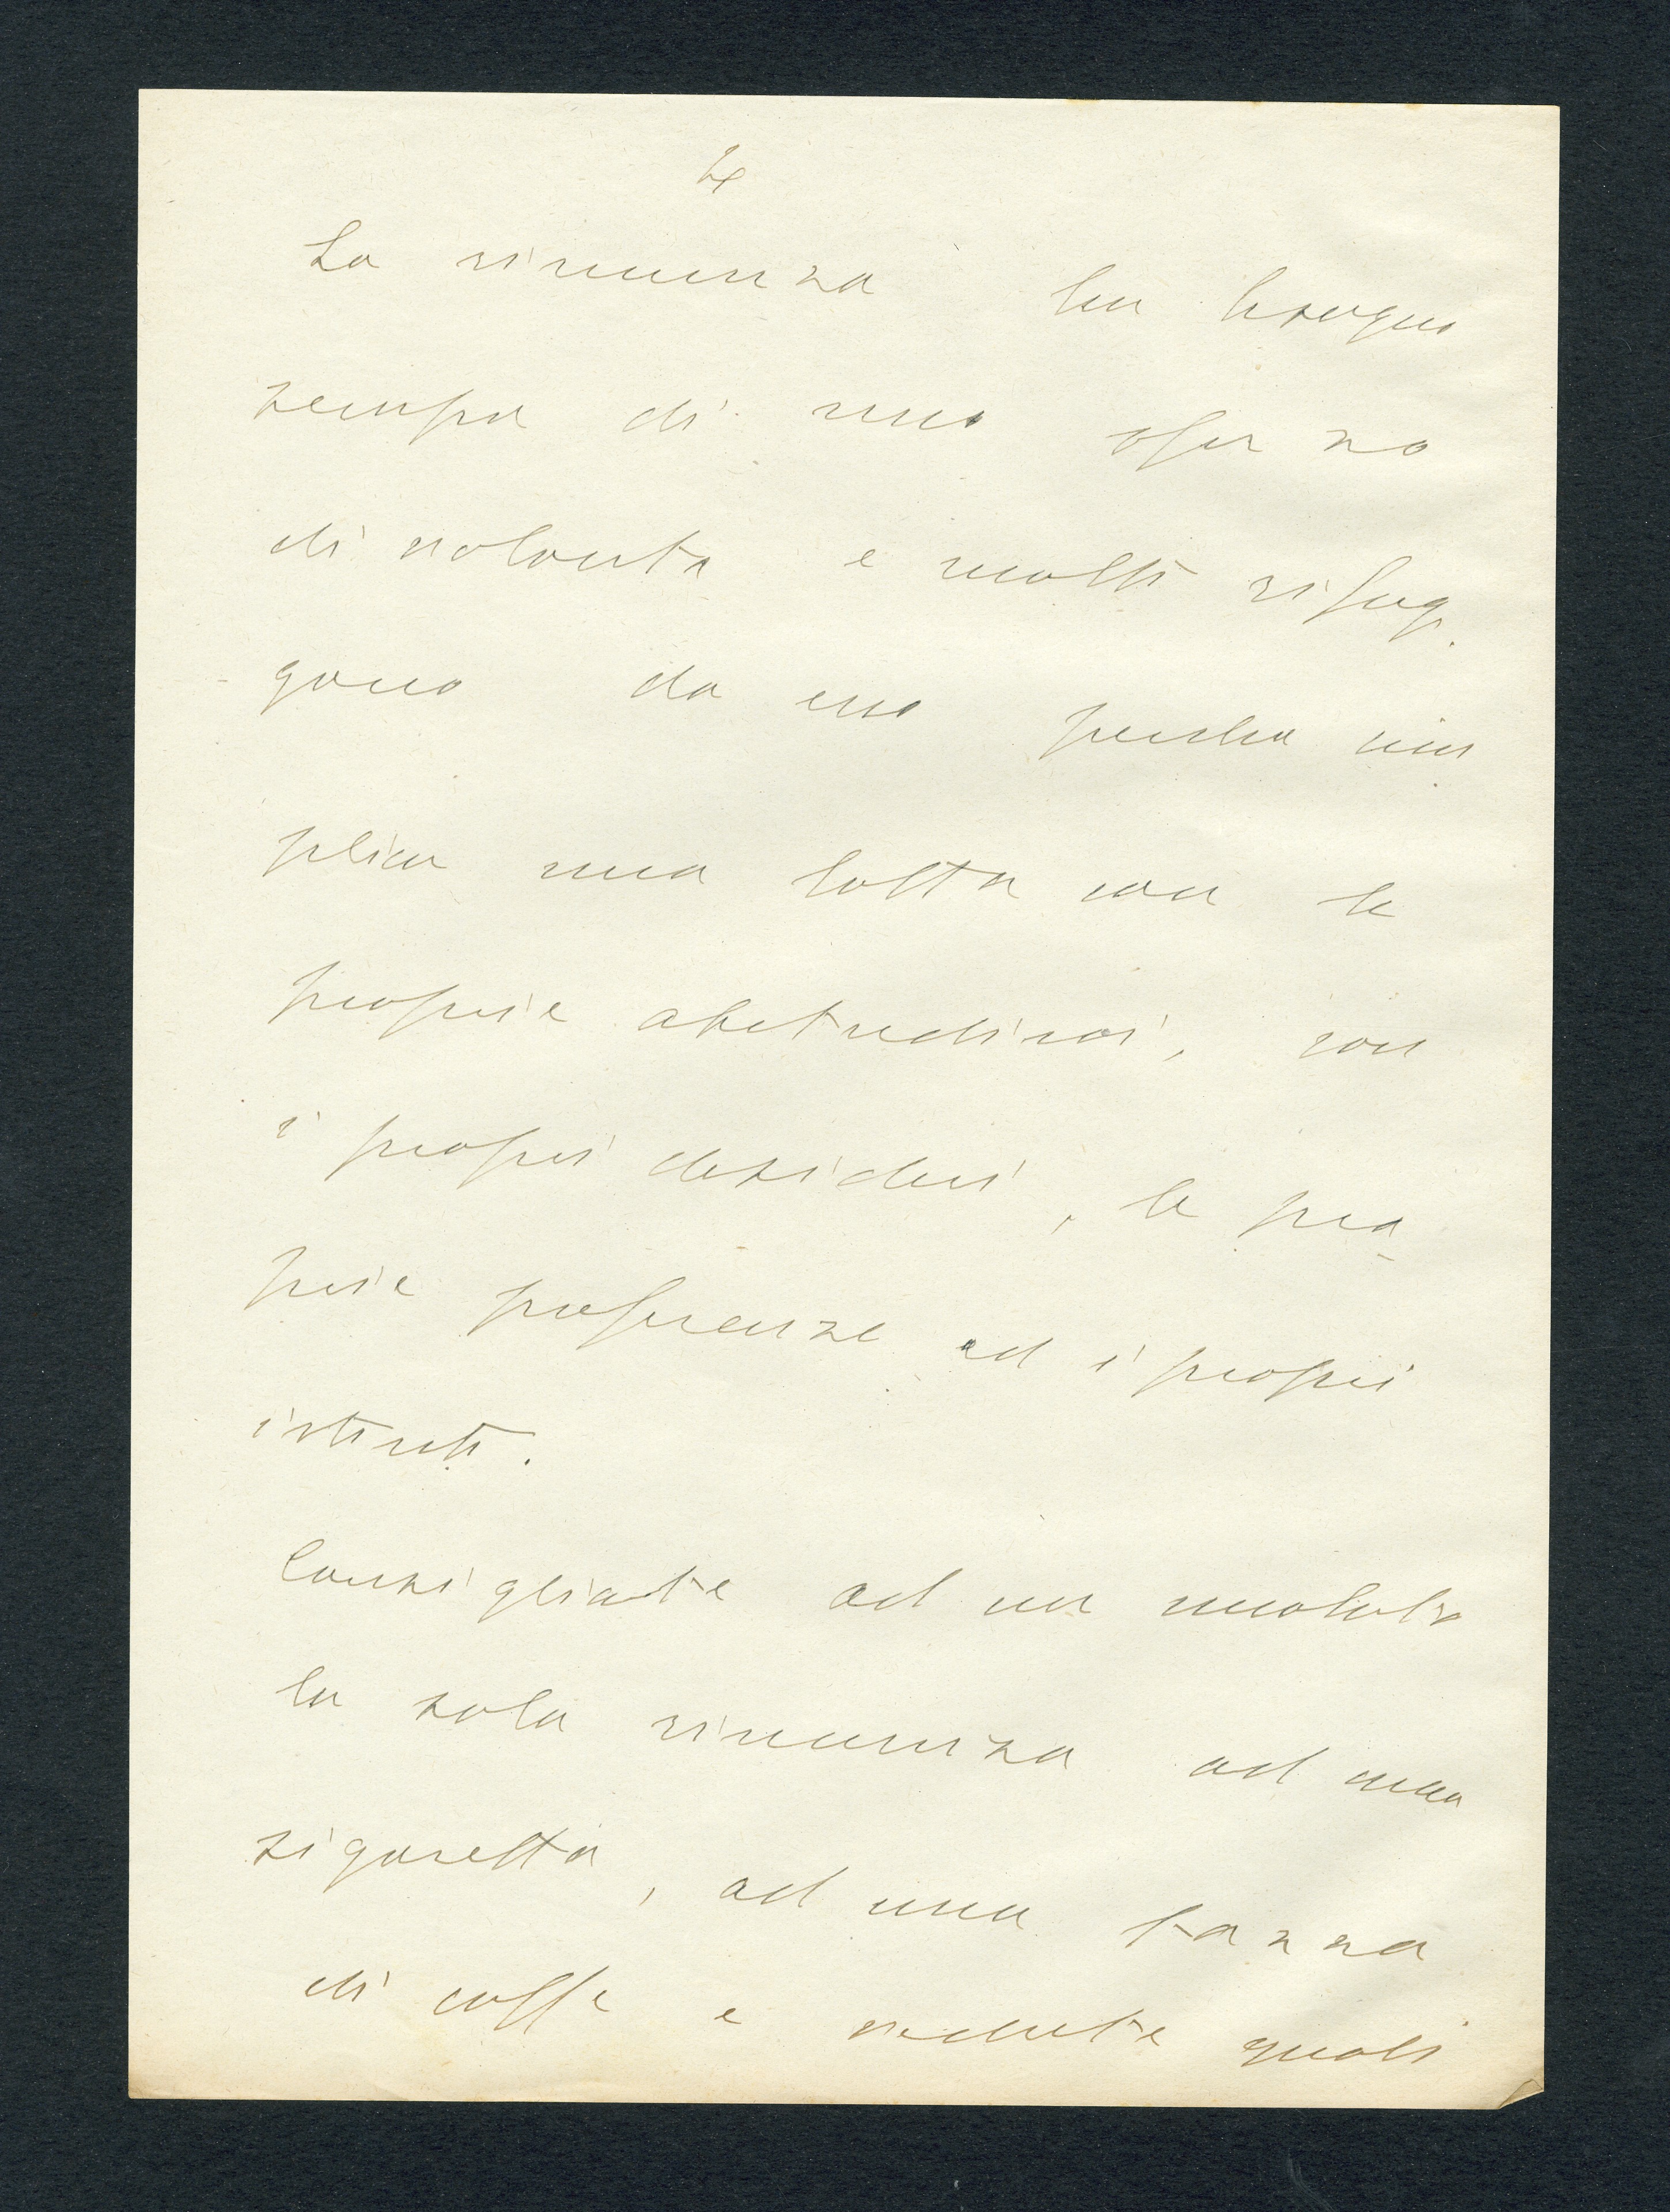 4
La rinunzia ha bisogno
sempre di uno sforzo
di volontà e molti rifug-
gono da essa perchè im
plica una lotta con le
proprie abitudini, con
i propri desideri, le pro-
prie preferenze ed i propri
istinti.
Consigliate ad un malato
la sola rinunzia ad una
sigaretta, ad una tazza
di caffè e vedrete quali